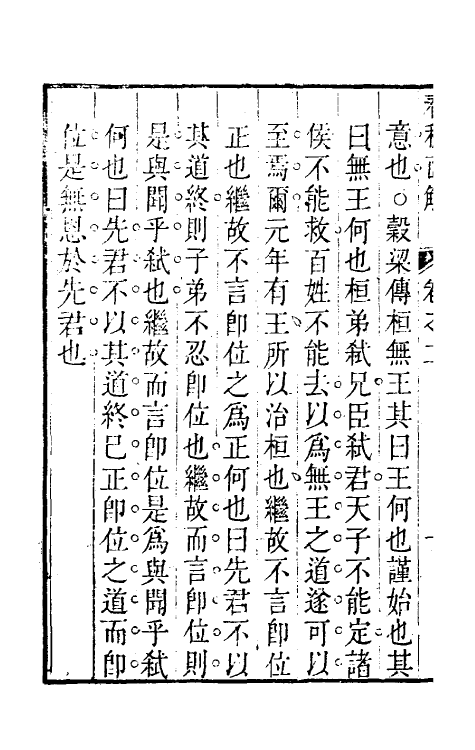 意也○穀梁傳桓無王其曰王何也謹始也其
曰無王何也桓弟弒兄臣弒君天子不能定諸
侯不能救百姓不能去以爲無王之道遂可以
至焉爾元年有王所以治桓也繼故不言卽位
正也繼故不言卽位之爲正何也曰先君不以
其道終則子弟不忍卽位也繼故而言卽位則
是與聞乎弒也繼故而言卽位是爲與聞乎弒
何也曰先君不以其道終已正卽位之道而卽
位是無恩於先君也